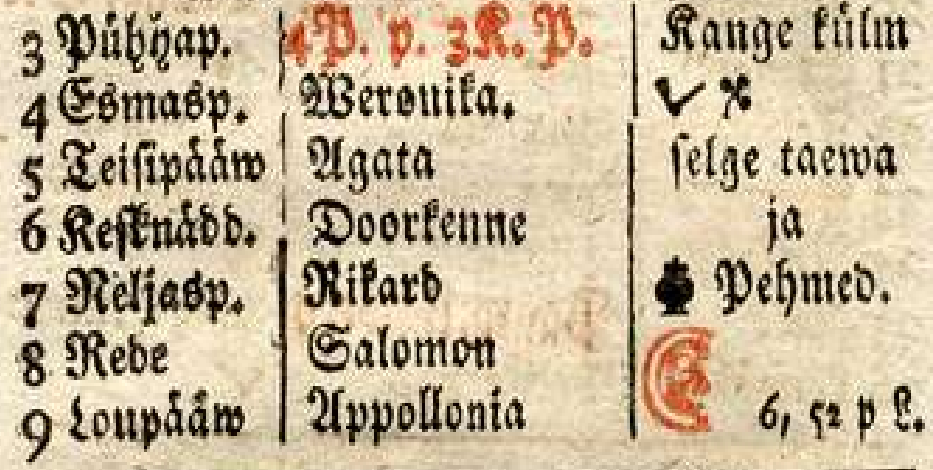 3 Pühhap. 4 P. p. 3 K. P. Kange külm
4 Esmasp. Weronika.
5 Teisipääw Agata selge taewa
6 Kesknädd. Doorkenne ja
7 Neljasp. Rikard Pehmed.
8 Rede Salomon
9 Loupääw Appollonia 6, 52 p L.